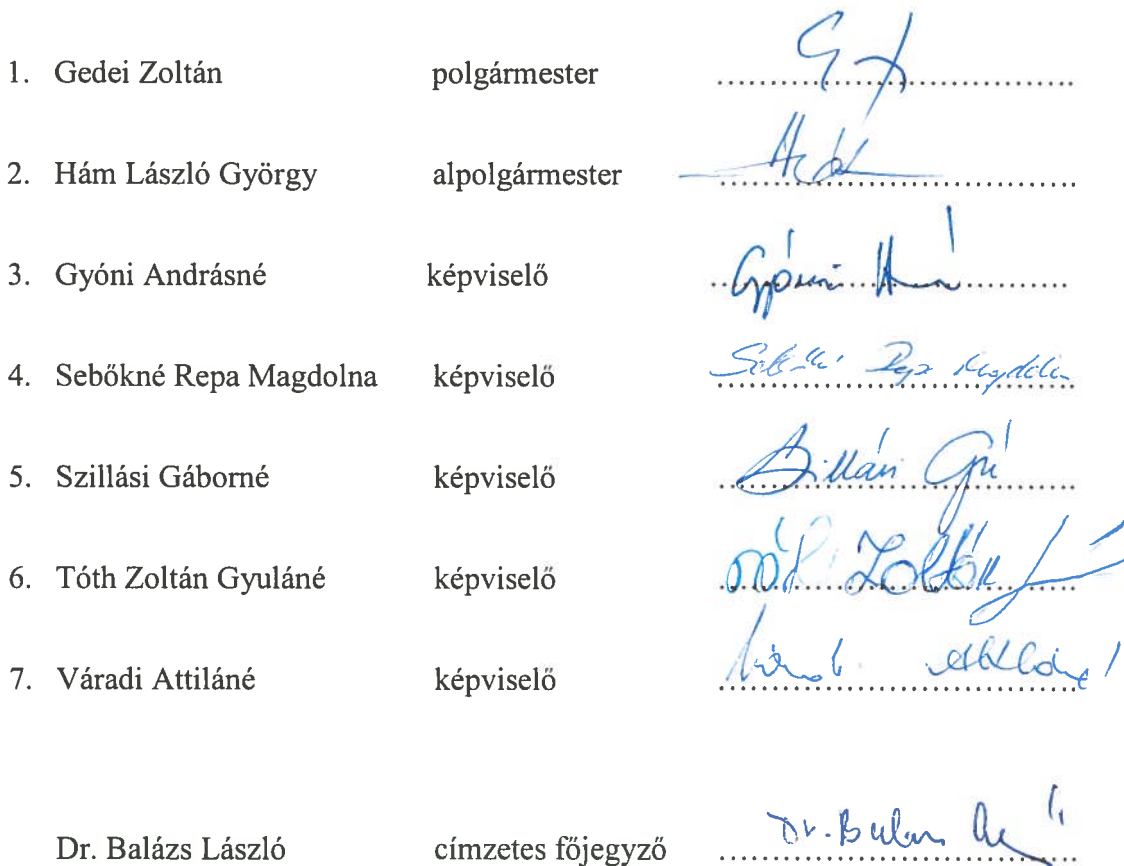 1. Gedei Zoltán polgármester
2. Hám László György alpolgármester
3. Gyóni Andrásné képviselő
4. Sebőkné Repa Magdolna képviselő
5. Szillási Gáborné képviselő
6. Tóth Zoltán Gyuláné képviselő Zoltán
7. Váradi Attiláné képviselő
Dr. Balázs László címzetes főjegyző Dr.